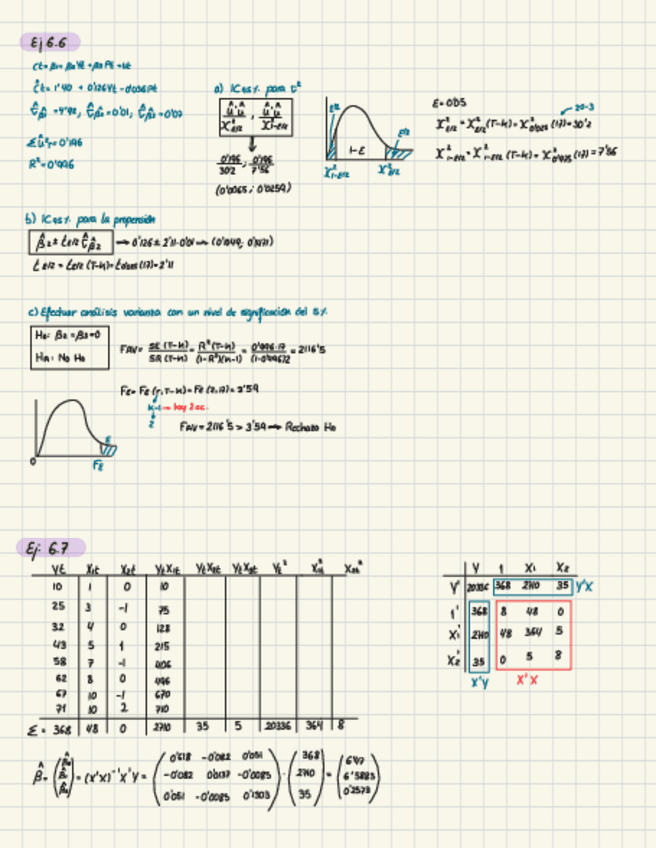 Ej 6.6
Ct = β1 + β2 Yt + β3 Pt + ut
Ĉt = 1'40 + 0'126Yt - 0'036Pt
Σû²t = 0'196
R² = 0'996
a) IC 95% para σ²
û'û / χ²ε/2 , û'û / χ²1-ε/2
0'196 / 30'2 ; 0'196 / 7'56
(0'0065 ; 0'0259)
ε/2
1-ε
ε/2
χ²1-ε/2
χ²ε/2
ε = 0'05
20-3
χ²ε/2 = χ²ε/2 (T-k) = χ²0'025 (17) = 30'2
χ²1-ε/2 = χ²1-ε/2 (T-k) = χ²0'975 (17) = 7'56
b) IC 95% para la propensión
β̂2 ± tε/2 σ̂β̂2 → 0'126 ± 2'11·0'01 →
tε/2 = tε/2 (T-k) = t0'025 (17) = 2'11
c) Efectuar análisis varianza con un nivel de significación del 5%
H0: β2 = β3 = 0
HA: No H0
FAV = SE (T-k) / SR (T-k) = R² (T-k) / (1-R²)(k-1) = 0'996·17 / (1-0'996)2 = 2116'5
Fε = Fε (r, T-k) = Fε (2,17) = 3'59
k-1 → hay 2 ec.
2
FAV = 2116'5 > 3'59 → Rechazo H0
0
ε
Fε
Ej: 6.7
Yt X1t X2t YtX1t YtX2t Yt² X1t² X2t²
10 1 0 10
25 3 -1 75
32 4 0 128
43 5 1 215
58 7 -1 406
62 8 0 496
67 10 -1 670
71 10 2 710
Σ = 368 48 0 2710 35 5 20336 364 8
Y 1 X1 X2
Y' 20336 368 2710 35 Y'X
1' 368 8 48 0
X1' 2710 48 364 5
X2' 35 0 5 8
X'Y X'X
β̂ = = (X'X)⁻¹ X'Y =
0'618 -0'082 0'051 368
-0'082 0'0137 -0'0085 · 2710 = 6'5883
0'051 -0'0085 0'1303 35 0'2573